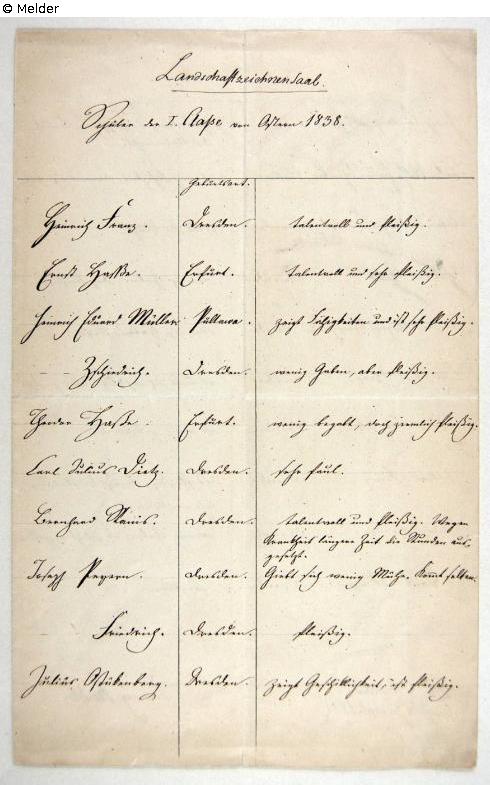 © Melder
Landschaftzeichnensaal.
Schüler der I. Klaße von Ostern 1838.
Geburtsort.
Heinrich Franz. Dresden. talentvoll und fleißig.
Ernst Haße. Erfurt. talentvoll und sehr fleißig.
Heinrich Eduard Müller Pultawa. zeigt Fähigkeiten und ist sehr fleißig.
Zschiedrich. Dresden. wenig Gaben, aber fleißig.
Theodor Haße. Erfurt. wenig begabt, doch ziemlich fleißig.
Carl Julius Dietz. Dresden. sehr faul.
Bernhard Dresden. talentvoll und fleißig. Wegen
Krankheit längere Zeit die Stunden aus-
gesetzt.
Joseph Dresden. Giebt sich wenig Mühe. Kommt selten.
Friedrich. Dresden. fleißig.
Julius Dresden. zeigt Geschicklichkeit, ist fleißig.